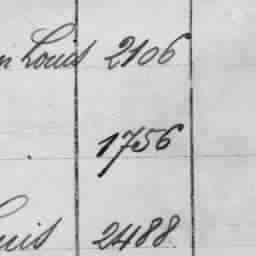 Louis 2106
1756
2488